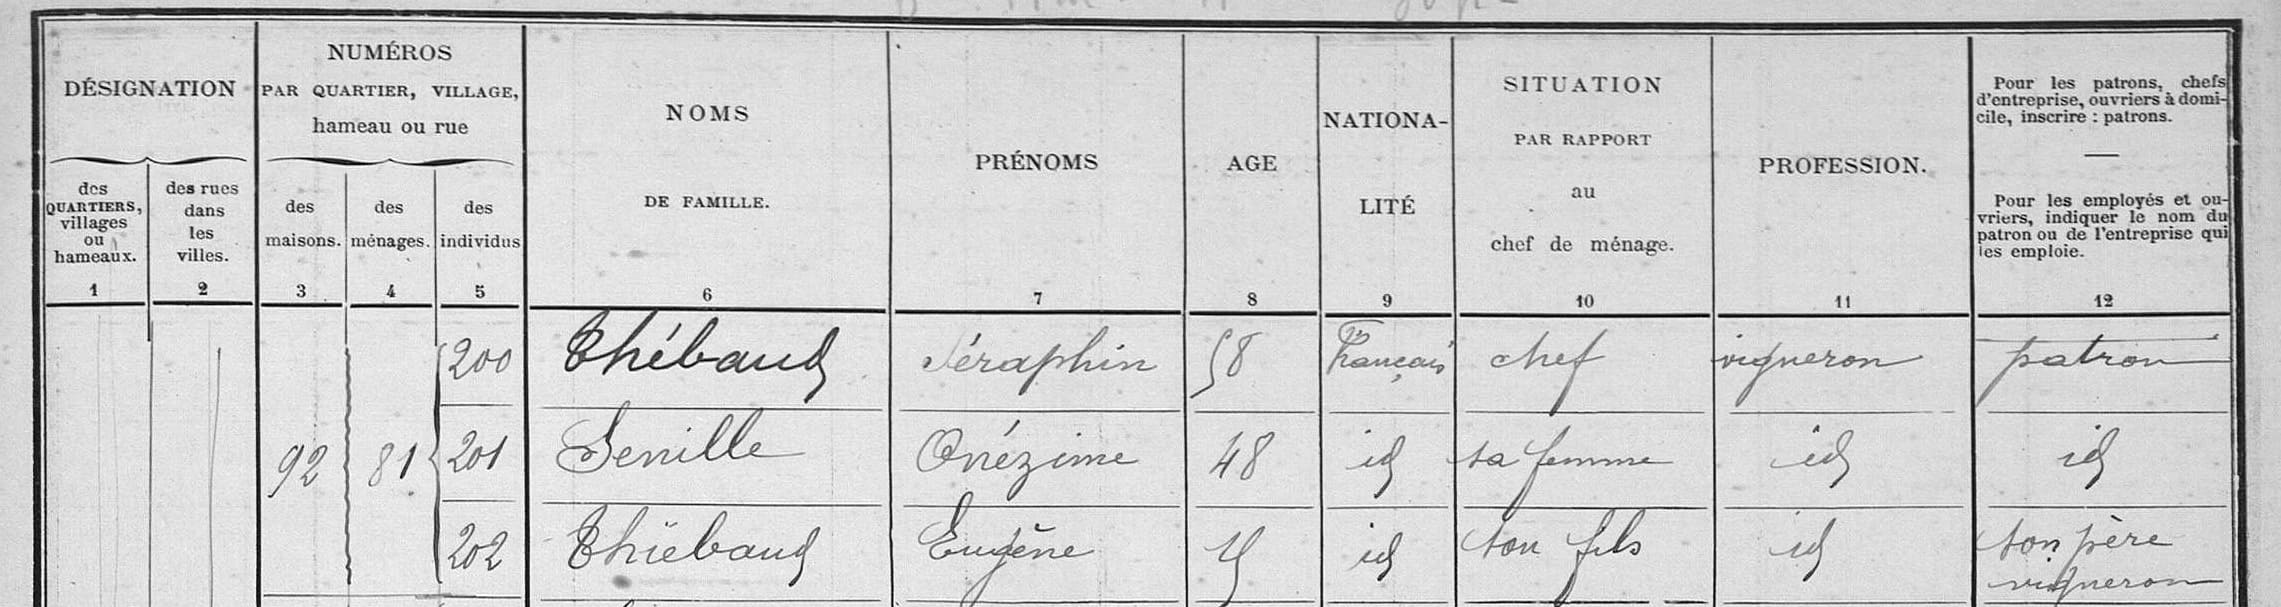 DÉSIGNATION
des
QUARTIERS,
villages
ou
hameaux.
1
des rues
dans
les
villes.
2
NUMÉROS
PAR QUARTIER, VILLAGE,
hameau ou rue
des
maisons.
3
des
ménages.
4
des
individus
5
NOMS
DE FAMILLE.
6
PRÉNOMS
7
AGE
8
NATIONA-
LITÉ
9
SITUATION
PAR RAPPORT
au
chef de ménage.
10
PROFESSION.
11
Pour les patrons, chefs
d'entreprise, ouvriers à domi-
cile, inscrire : patrons.
Pour les employés et ou-
vriers, indiquer le nom du
patron ou de l'entreprise qui
les emploie.
12
200 Thébaud Séraphin 58 Français chef vigneron patron
92 81 201 Senille Onézime 48 id sa femme id id
202 Thiébaud Eugène id son fils id son père
vigneron